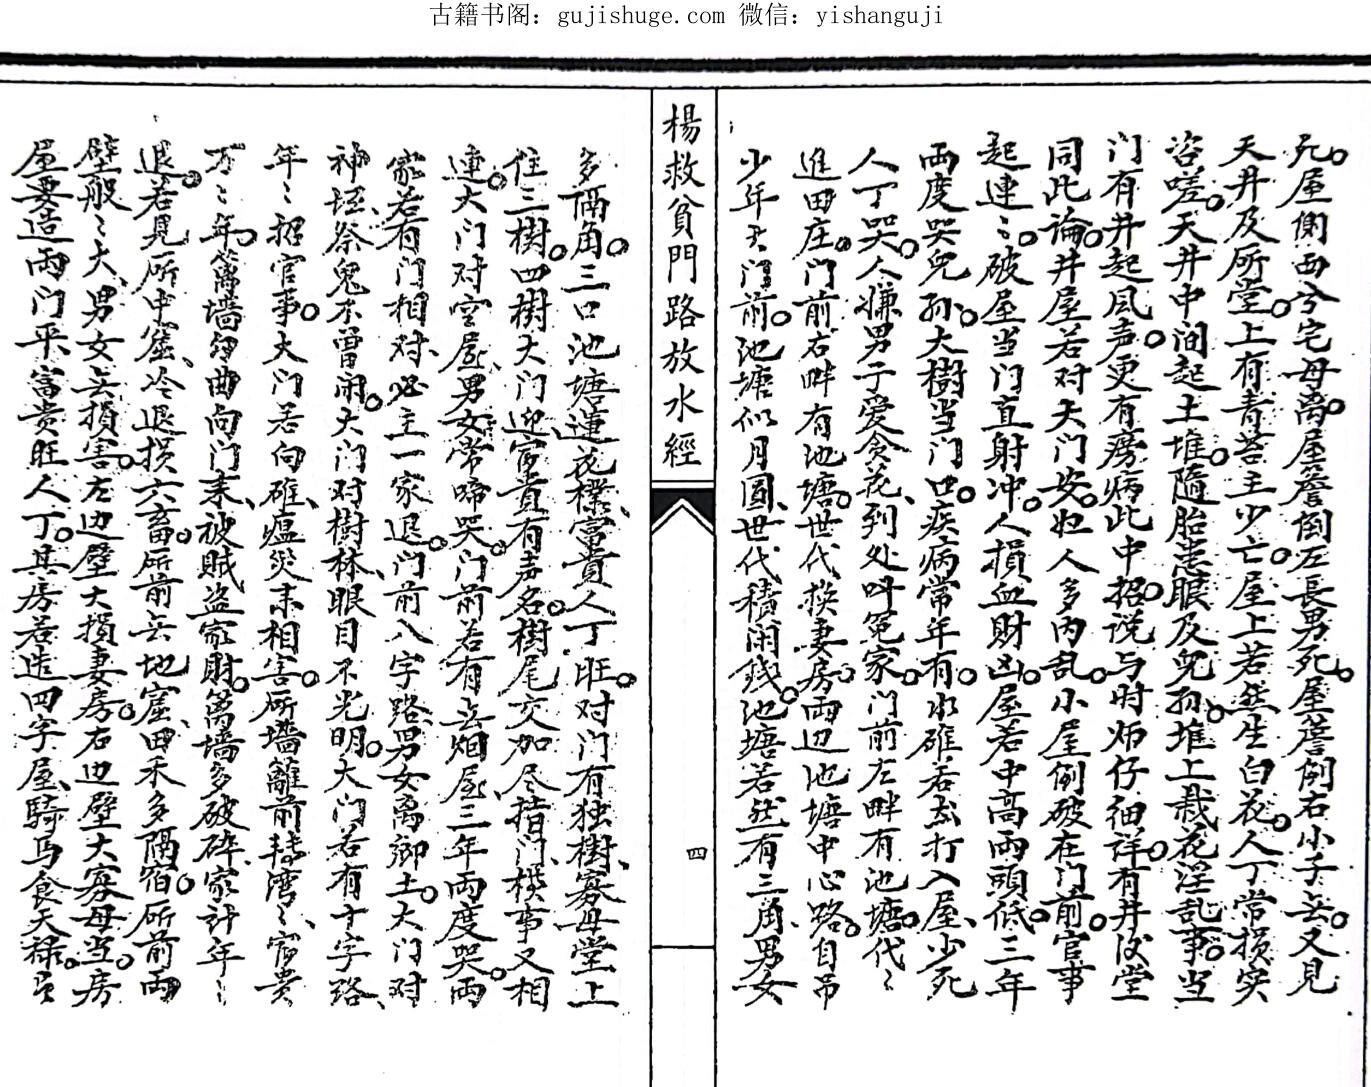 古籍书阁：gujishuge.com 微信：yishanguji
死。屋側西兮宅母离。屋簷倒左長男死。屋簷倒右小子亡。又見
天井及所堂。上有青苔主少亡。屋上若然生白花。人丁常損实
咨嗟。天井中间起土堆。隨胎患眼及兒孙。堆上栽花淫乱事。当
门有井起風声。更有痨病此中招。说与时师仔细詳。有井汝堂
同此論。井屋若对大门安。妇人多内乱。小屋倒破在门前。官事
起連〻。破屋当门直射冲。人損血財凶。屋若中高两頭低。三年
两度哭兒孙。大樹当门口。疾病常年有。水碓若去打入屋、少死
人丁哭。人嫌男子爱贪花、到处叫冤家。门前左畔有池塘。代〻
進田庄。门前右畔有池塘。世代换妻房。两边池塘中心路。自吊
少年亡。门前池塘似月圆、世代積闲錢。池塘若然有三角、男女
楊救貧門路放水經
四
多隔角。三口池塘蓮花樣、富貴人丁旺。对门有独樹、寡母堂上
住。二樹。四樹大门迎、富貴有声名。樹尾交加尽指门、横事又相
連。大门对空屋、男女常啼哭。门前若有无烟屋、三年两度哭。两
家若有门相对、必主一家退。门前八字路、男女离鄉土。大门对
神垭、祭鬼不曽闲。大门对樹林、眼目不光明。大门若有十字路、
年〻招官事。大门若向碓、瘟災来相害。所墻籬前转湾〻、富貴
万〻年。篱墙曲曲向门来、被賊盗家財。篱墙多破碎、家计年〻
退。若見所中窟、冷退損六畜。所前无地窟、田禾多隔宿。所前两
壁般〻大、男女无損害。左边壁大損妻房。右边壁大寡母当。房
屋要造两门平、富贵旺人丁。其房若造四字屋、騎马食天祿。